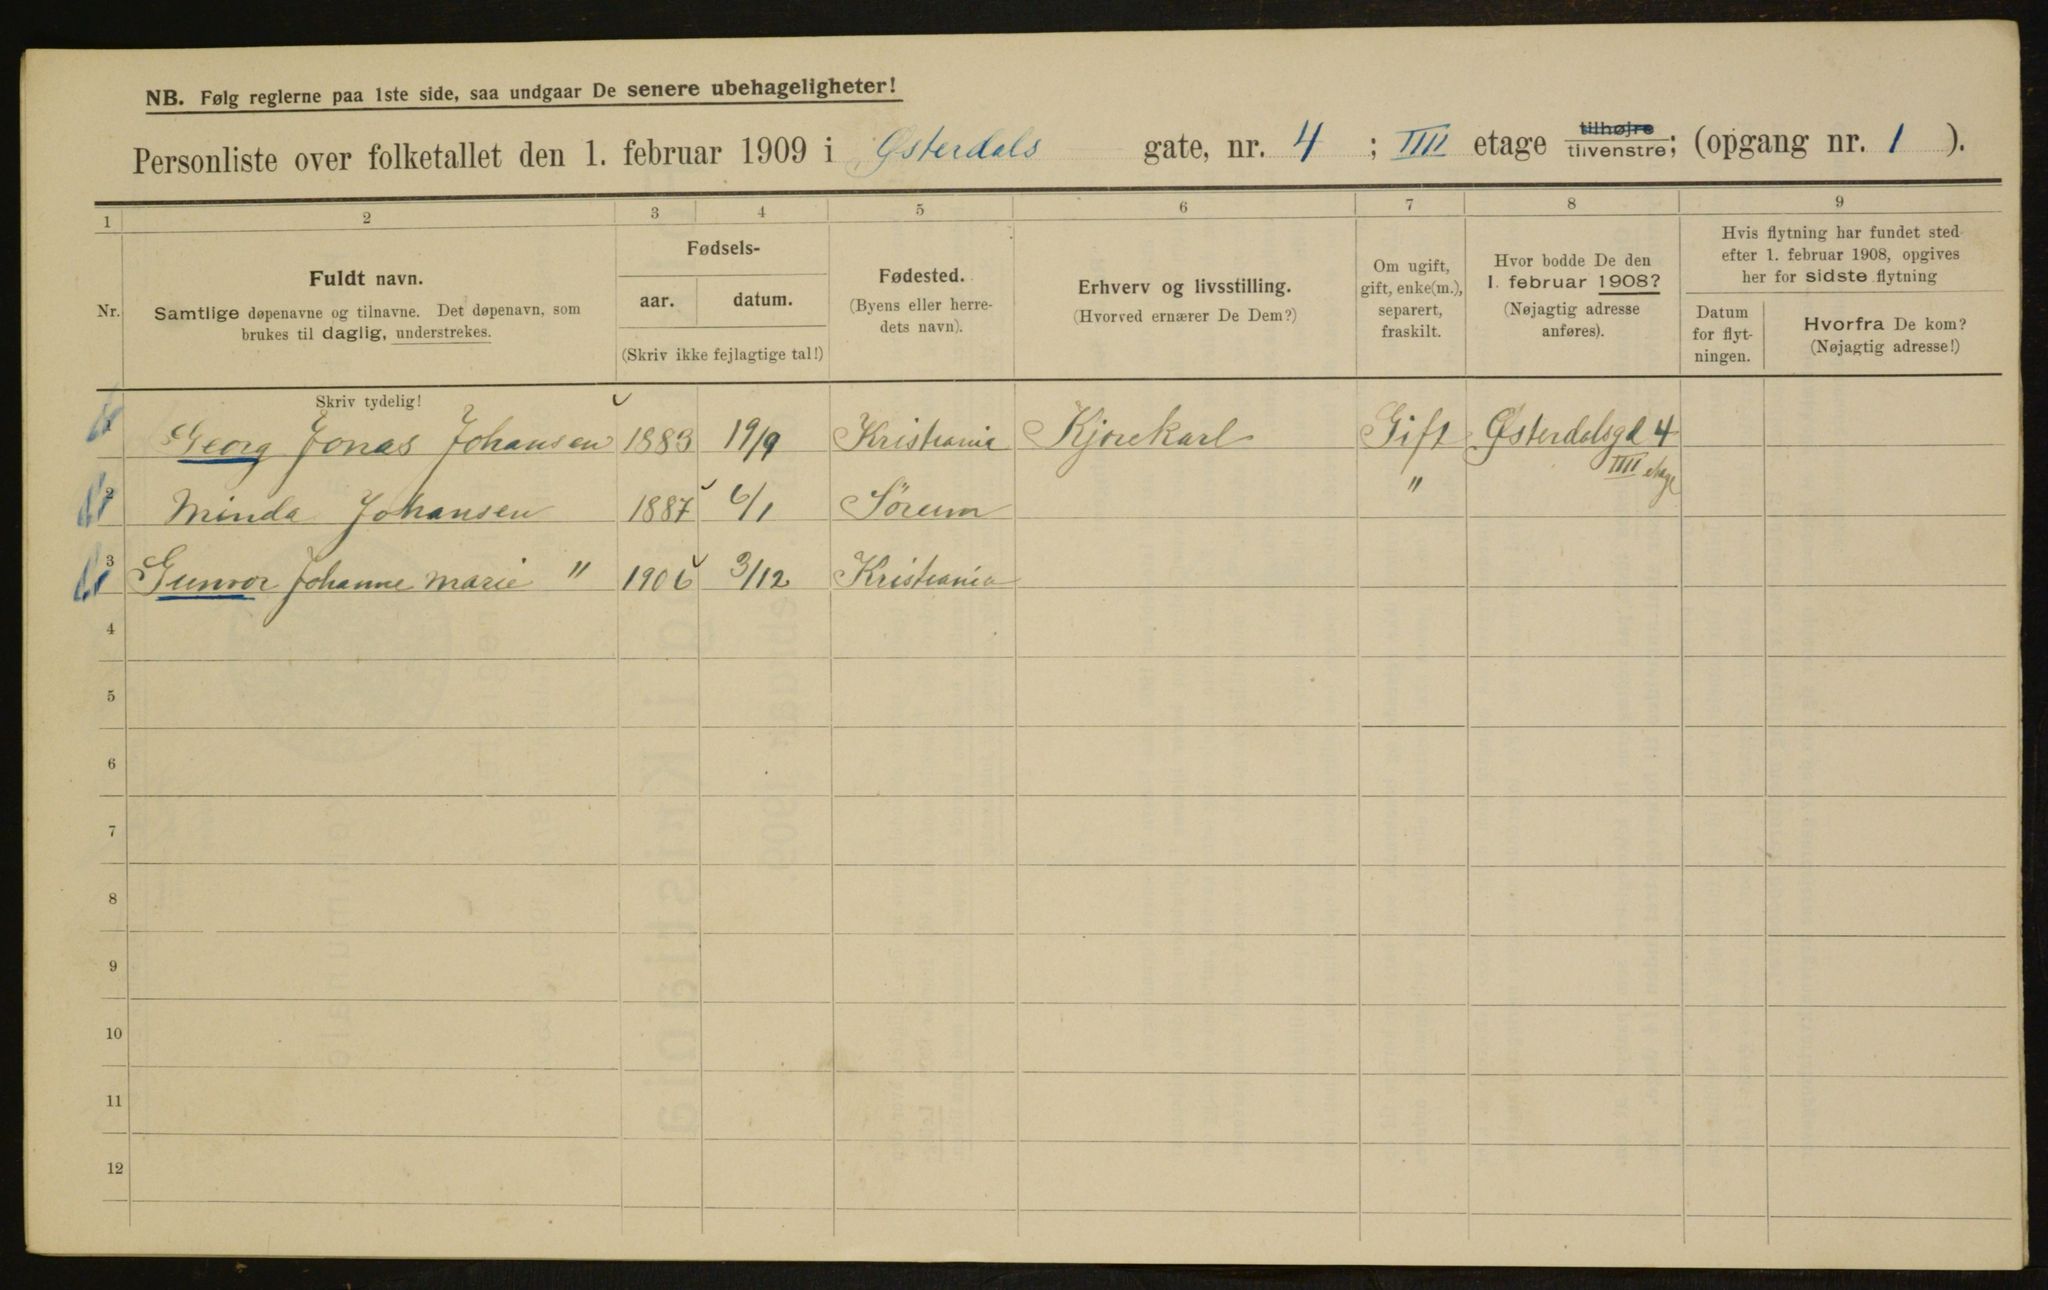 NB. Følg reglerne paa 1ste side, saa undgaar De senere ubehageligheter!
Personliste over folketallet den 1. februar 1909 i Østerdals gate, nr. 4 ; IIII etage tilhøjre tilvenstre; (opgang nr. 1 ).
1 2 3 4 5 6 7 8 9
Nr.
Fuldt navn.
Samtlige døpenavne og tilnavne. Det døpenavn, som
brukes til daglig, understrekes.
Fødsels-
aar. datum.
(Skriv ikke fejlagtige tal!)
Fødested.
(Byens eller herre-
dets navn).
Erhverv og livsstilling.
(Hvorved ernærer De Dem?)
Om ugift,
gift, enke(m.),
separert,
fraskilt.
Hvor bodde De den
1. februar 1908?
(Nøjagtig adresse
anføres).
Hvis flytning har fundet sted
efter 1. februar 1908, opgives
her for sidste flytning
Datum
for flyt-
ningen.
Hvorfra De kom?
(Nøjagtig adresse!)
Skriv tydelig!
1 Georg Jonas Johansen 1883 19/9 Kristiania Kjørekarl Gift Østerdalsgd 4
IIII etage
2 Minda Johansen 1887 6/1 Sørum "
3 Gunvor Johanne Marie " 1906 3/12 Kristiania
4
5
6
7
8
9
10
11
12